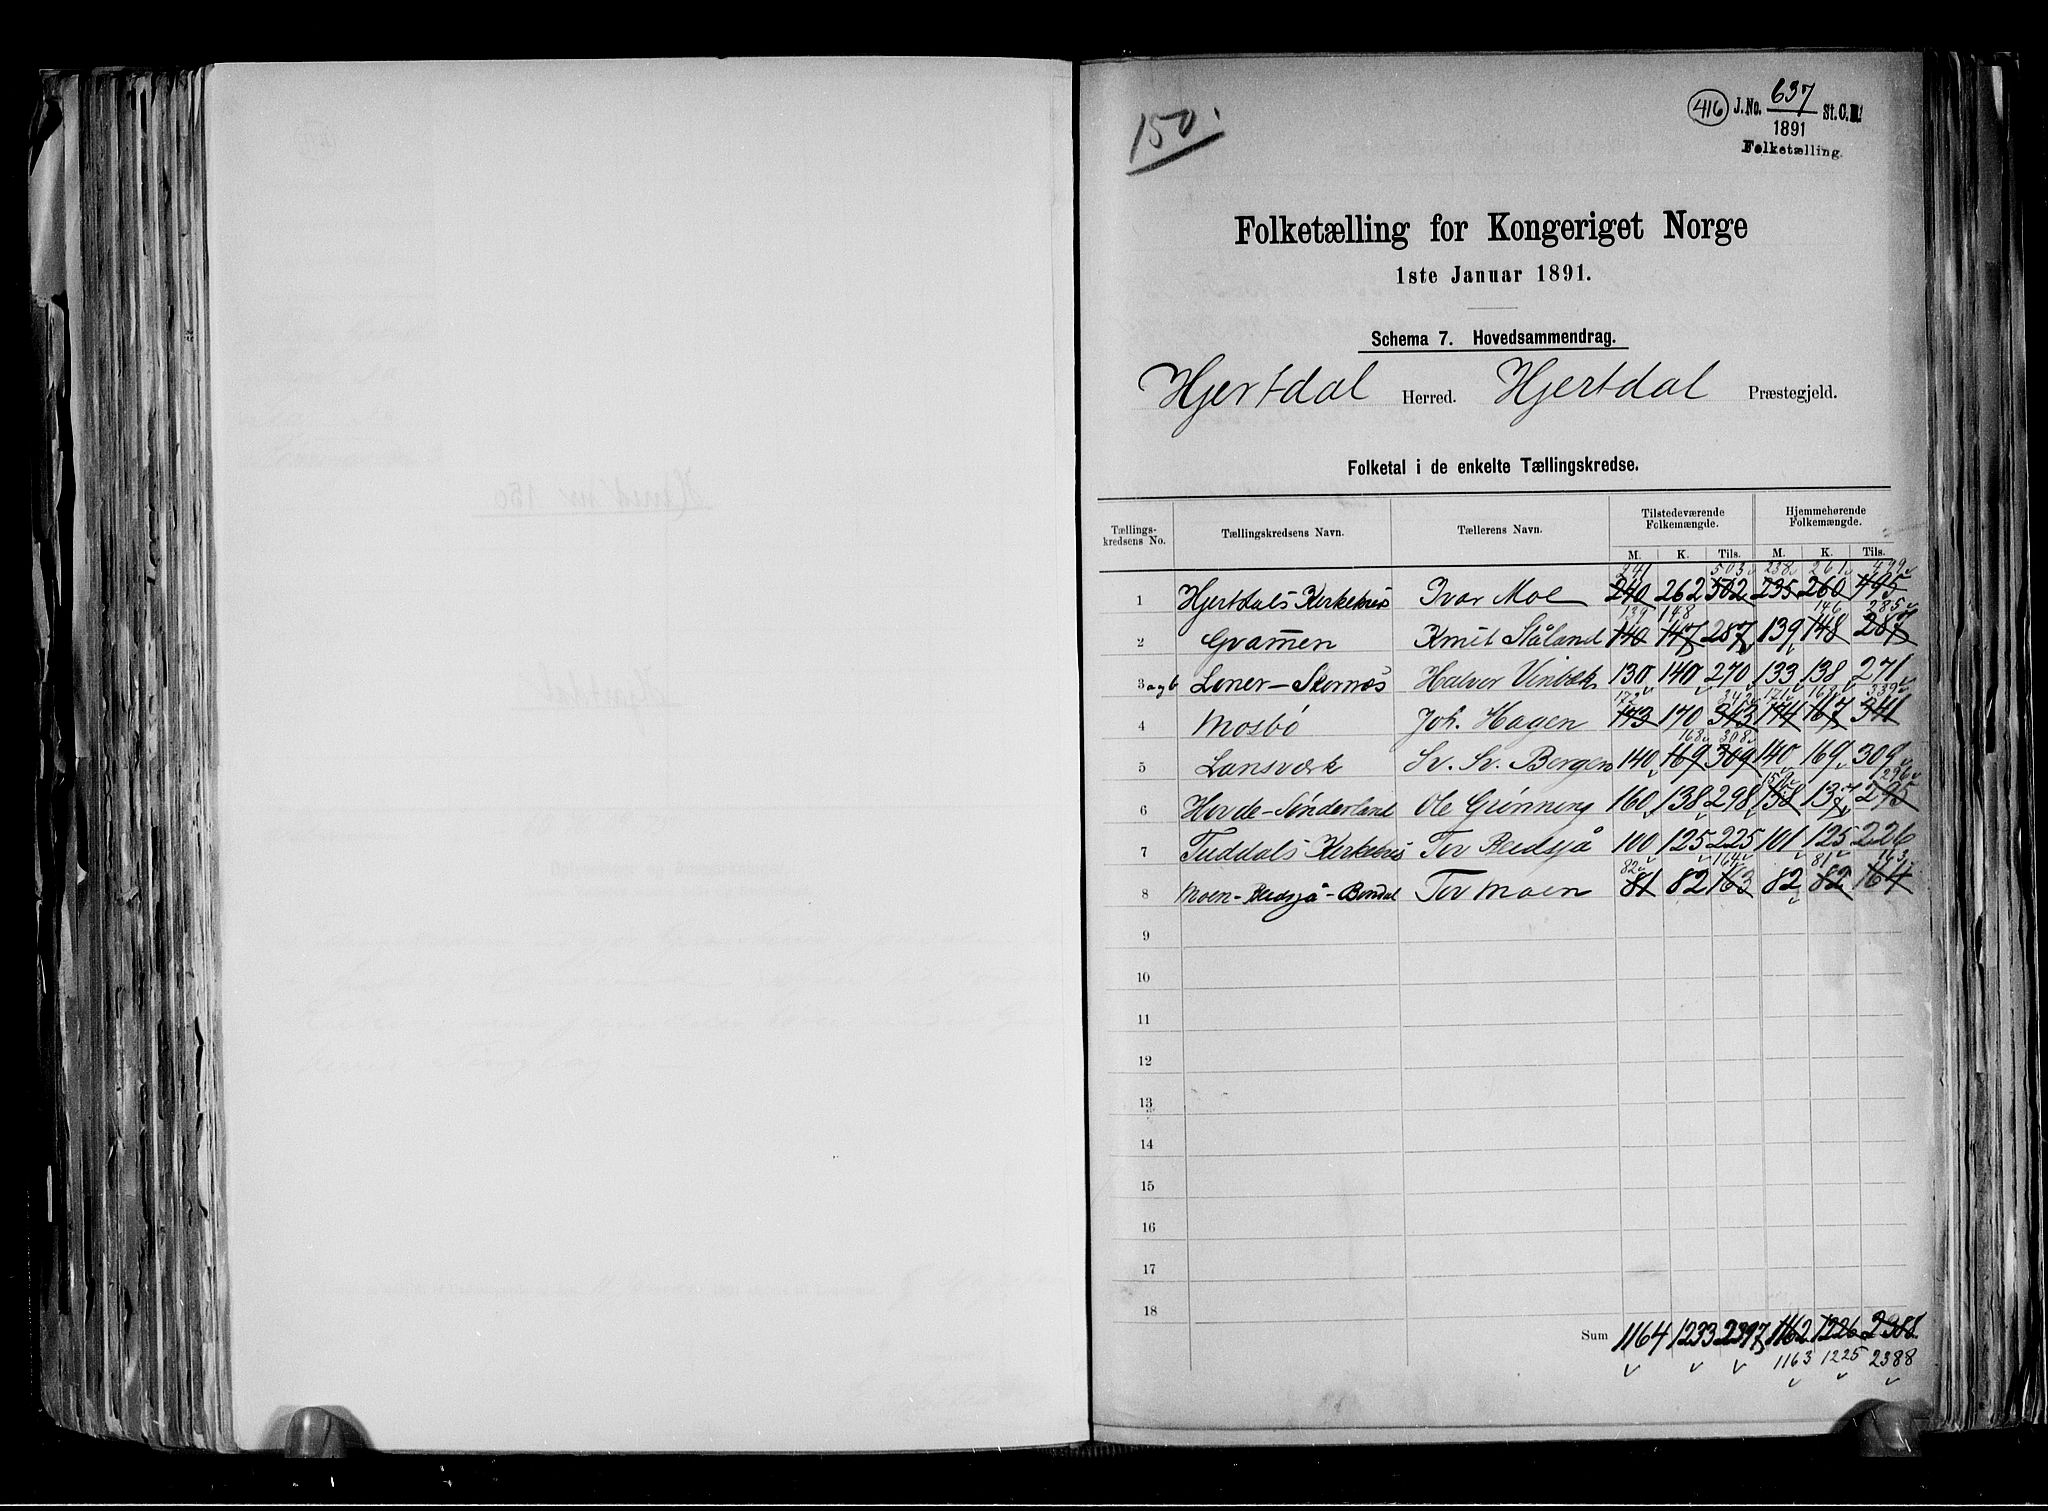 150.
416 J. No. 637 St. C.
1891
Folketælling.
Folketælling for Kongeriget Norge
1ste Januar 1891.
Schema 7. Hovedsammendrag.
Hjertdal Herred. Hjertdal Præstegjeld.
Folketal i de enkelte Tællingskredse.
Tællings-kredsens No. Tællingskredsens Navn. Tællerens Navn. Tilstedeværende Folkemængde. Hjemmehørende Folkemængde.
M. K. Tils. M. K. Tils.
241 503 238 261 499
1 Hjertdals Kirkekres Ivar Moe 240 262 502 235 260 495
139 148 146 285
2 Gvammen Knut Ståland 140 147 287 139 148 287
3 a og b Loner-Skornæs Halvor Vinbæk 130 140 270 133 138 271
172 342 171 168 339
4 Mosbö Joh. Hagen 173 170 343 174 167 341
168 308
5 Lansværk Sv. Sv. Bergen 140 169 309 140 169 309
159 296
6 Hovde-Sønderland Ole Grönning 160 138 298 158 137 295
7 Tuddals Kirkekres Tov Reisjå 100 125 225 101 125 226
82 164 81 163
8 Moen-Reisjå-Bondal Tov Moen 81 82 163 82 82 164
9
10
11
12
13
14
15
16
17
18
Sum 1164 1233 2397 1162 1226 2388
1163 1225 2388